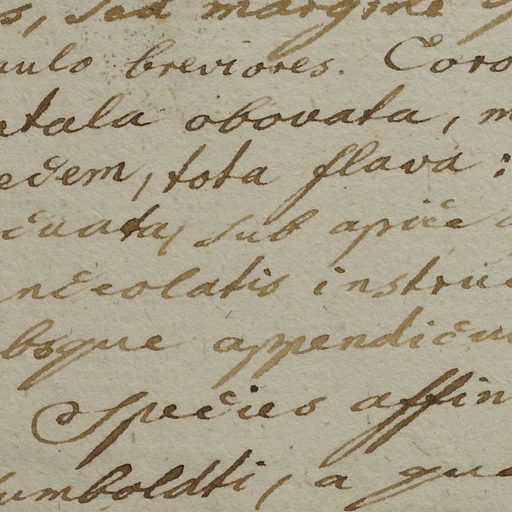 s, sed margine
aulo breviores. Coro
etala obovata, m
ecem, tota flava:
cuata, sub apice
nceolatis instruc
bsque appendicu
Species affin
umboldti, a qua